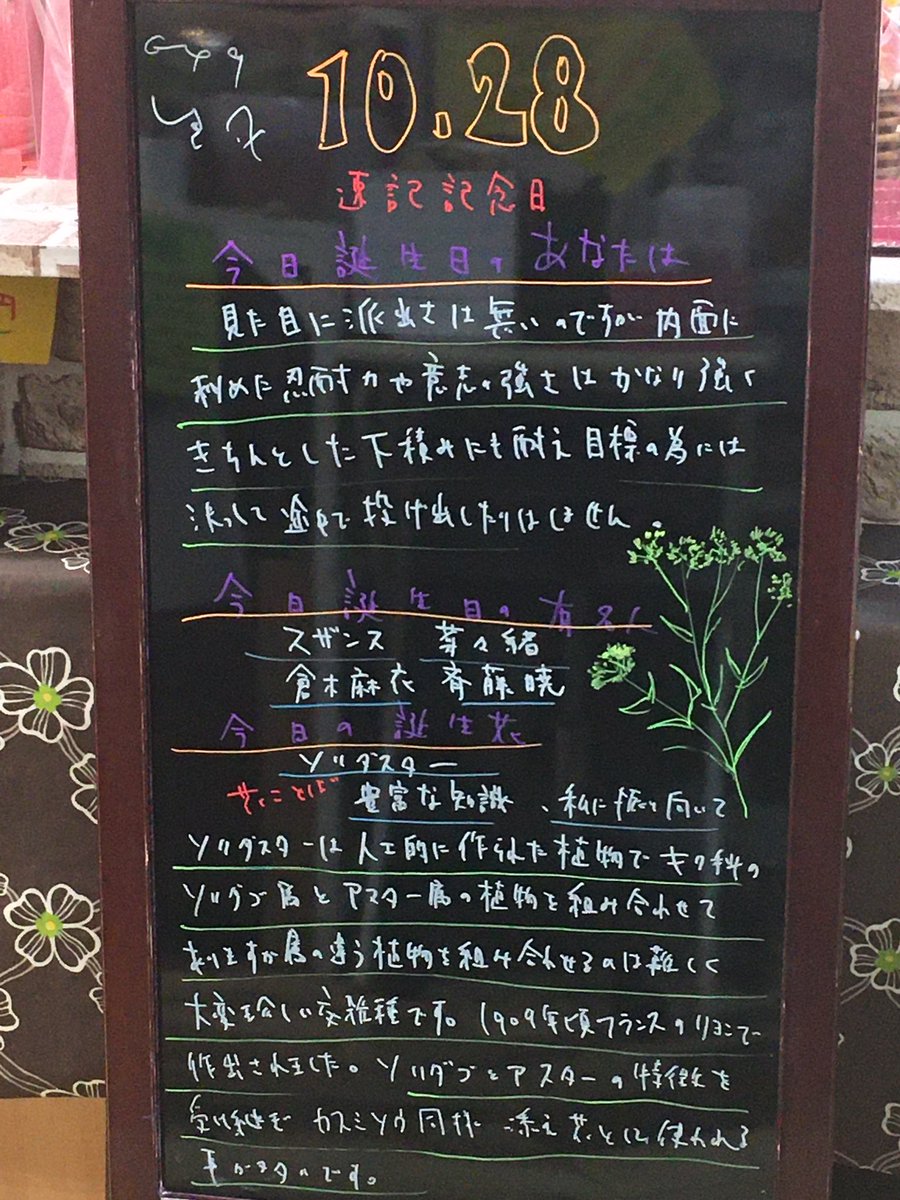 10.28
速記記念日
今日誕生日のあなたは
見た目に派出さは無いのですが内面に
秘めた忍耐力や意志の強さはかなり強く
きちんとした下積みにも耐え目標の為には
決して途中で投げ出したりはしません。
今日誕生日の有名人
スザンヌ 菜々緒
倉木麻衣 斉藤暁
今日の誕生花
ソリダスター
花ことば 豊富な知識、私に振り向いて
ソリダスターは人工的に作られた植物でキク科の
ソリダゴ属とアスター属の植物を組み合わせて
ありますが属の違う植物を組み合わせるのは難しく
大変珍しい交雑種です。1909年頃フランスのリヨンで
作出されました。ソリダゴとアスターの特徴を
受け継ぎカスミソウ同様に添え花として使われる
事が多いです。